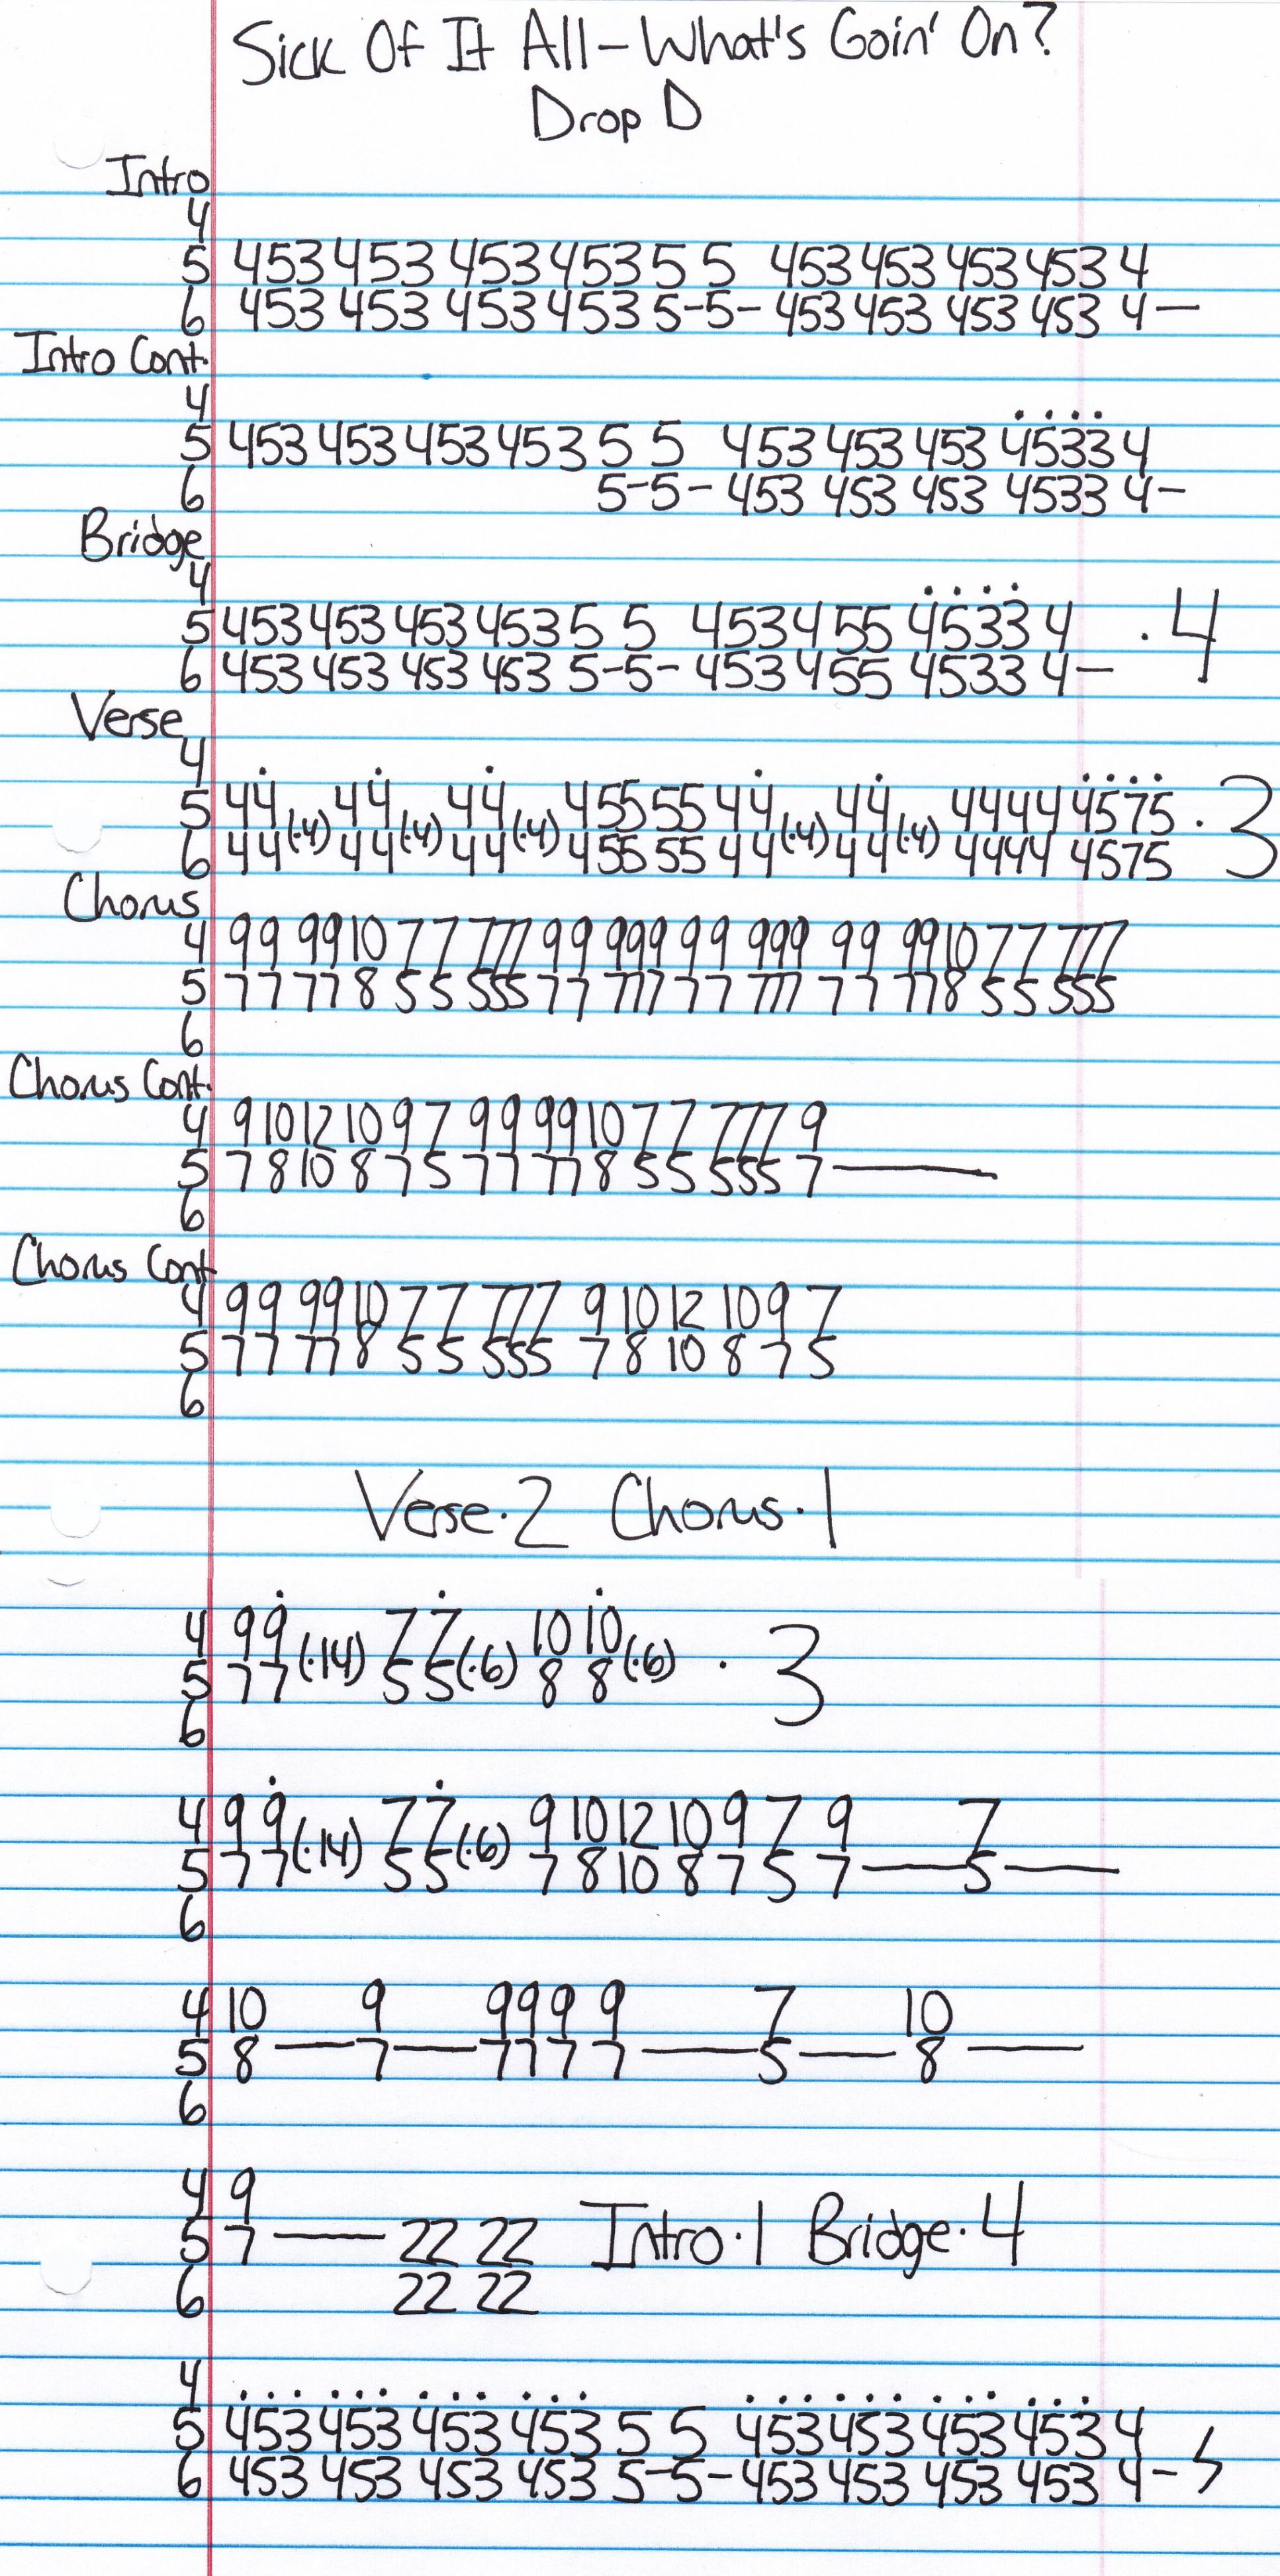 Sick Of It All - What's Goin' On?
Drop D
Intro
4
5 453 453 453 453 5 5 453 453 453 453 4
6 453 453 453 453 5-5- 453 453 453 453 4—
Intro Cont.
4
5 453 453 453 453 5 5 453 453 453 4533 4
6 5-5- 453 453 453 4533 4-
Bridge
4
5 453 453 453 453 5 5 453 455 4533 4 · 4
6 453 453 453 453 5-5- 453 455 4533 4—
Verse
4
5 44 (·4) 44 (·4) 44 (·4) 455 55 44 (·4) 44 (·4) 4444 4575 · 3
6 44 44 44 455 55 44 44 4444 4575
Chorus
4 99 99 10 77 777 99 999 99 999 99 99 10 77 777
5 77 77 8 55 555 77 777 77 777 77 77 8 55 555
6
Chorus Cont.
4 9 10 12 10 9 7 99 99 10 77 777 9
5 7 8 10 8 7 5 77 77 8 55 555 7 ———
6
Chorus Cont
4 99 99 10 77 777 9 10 12 10 9 7
5 77 77 8 55 555 7 8 10 8 7 5
6
Verse·2 Chorus·1
4 99 (·14) 77 (·6) 10 10 (·6) · 3
5 77 55 8 8
6
4 99 (·14) 77 (·6) 9 10 12 10 9 7 9 7
5 77 55 7 8 10 8 7 5 7 — 5 —
6
4 10 9 999 9 7 10
5 8 — 7 — 777 7 — 5 — 8 —
6
4 9
5 7 — 22 22 Intro·1 Bridge·4
6 22 22
4
5 453 453 453 453 5 5 453 453 453 453 4
6 453 453 453 453 5-5- 453 453 453 453 4-